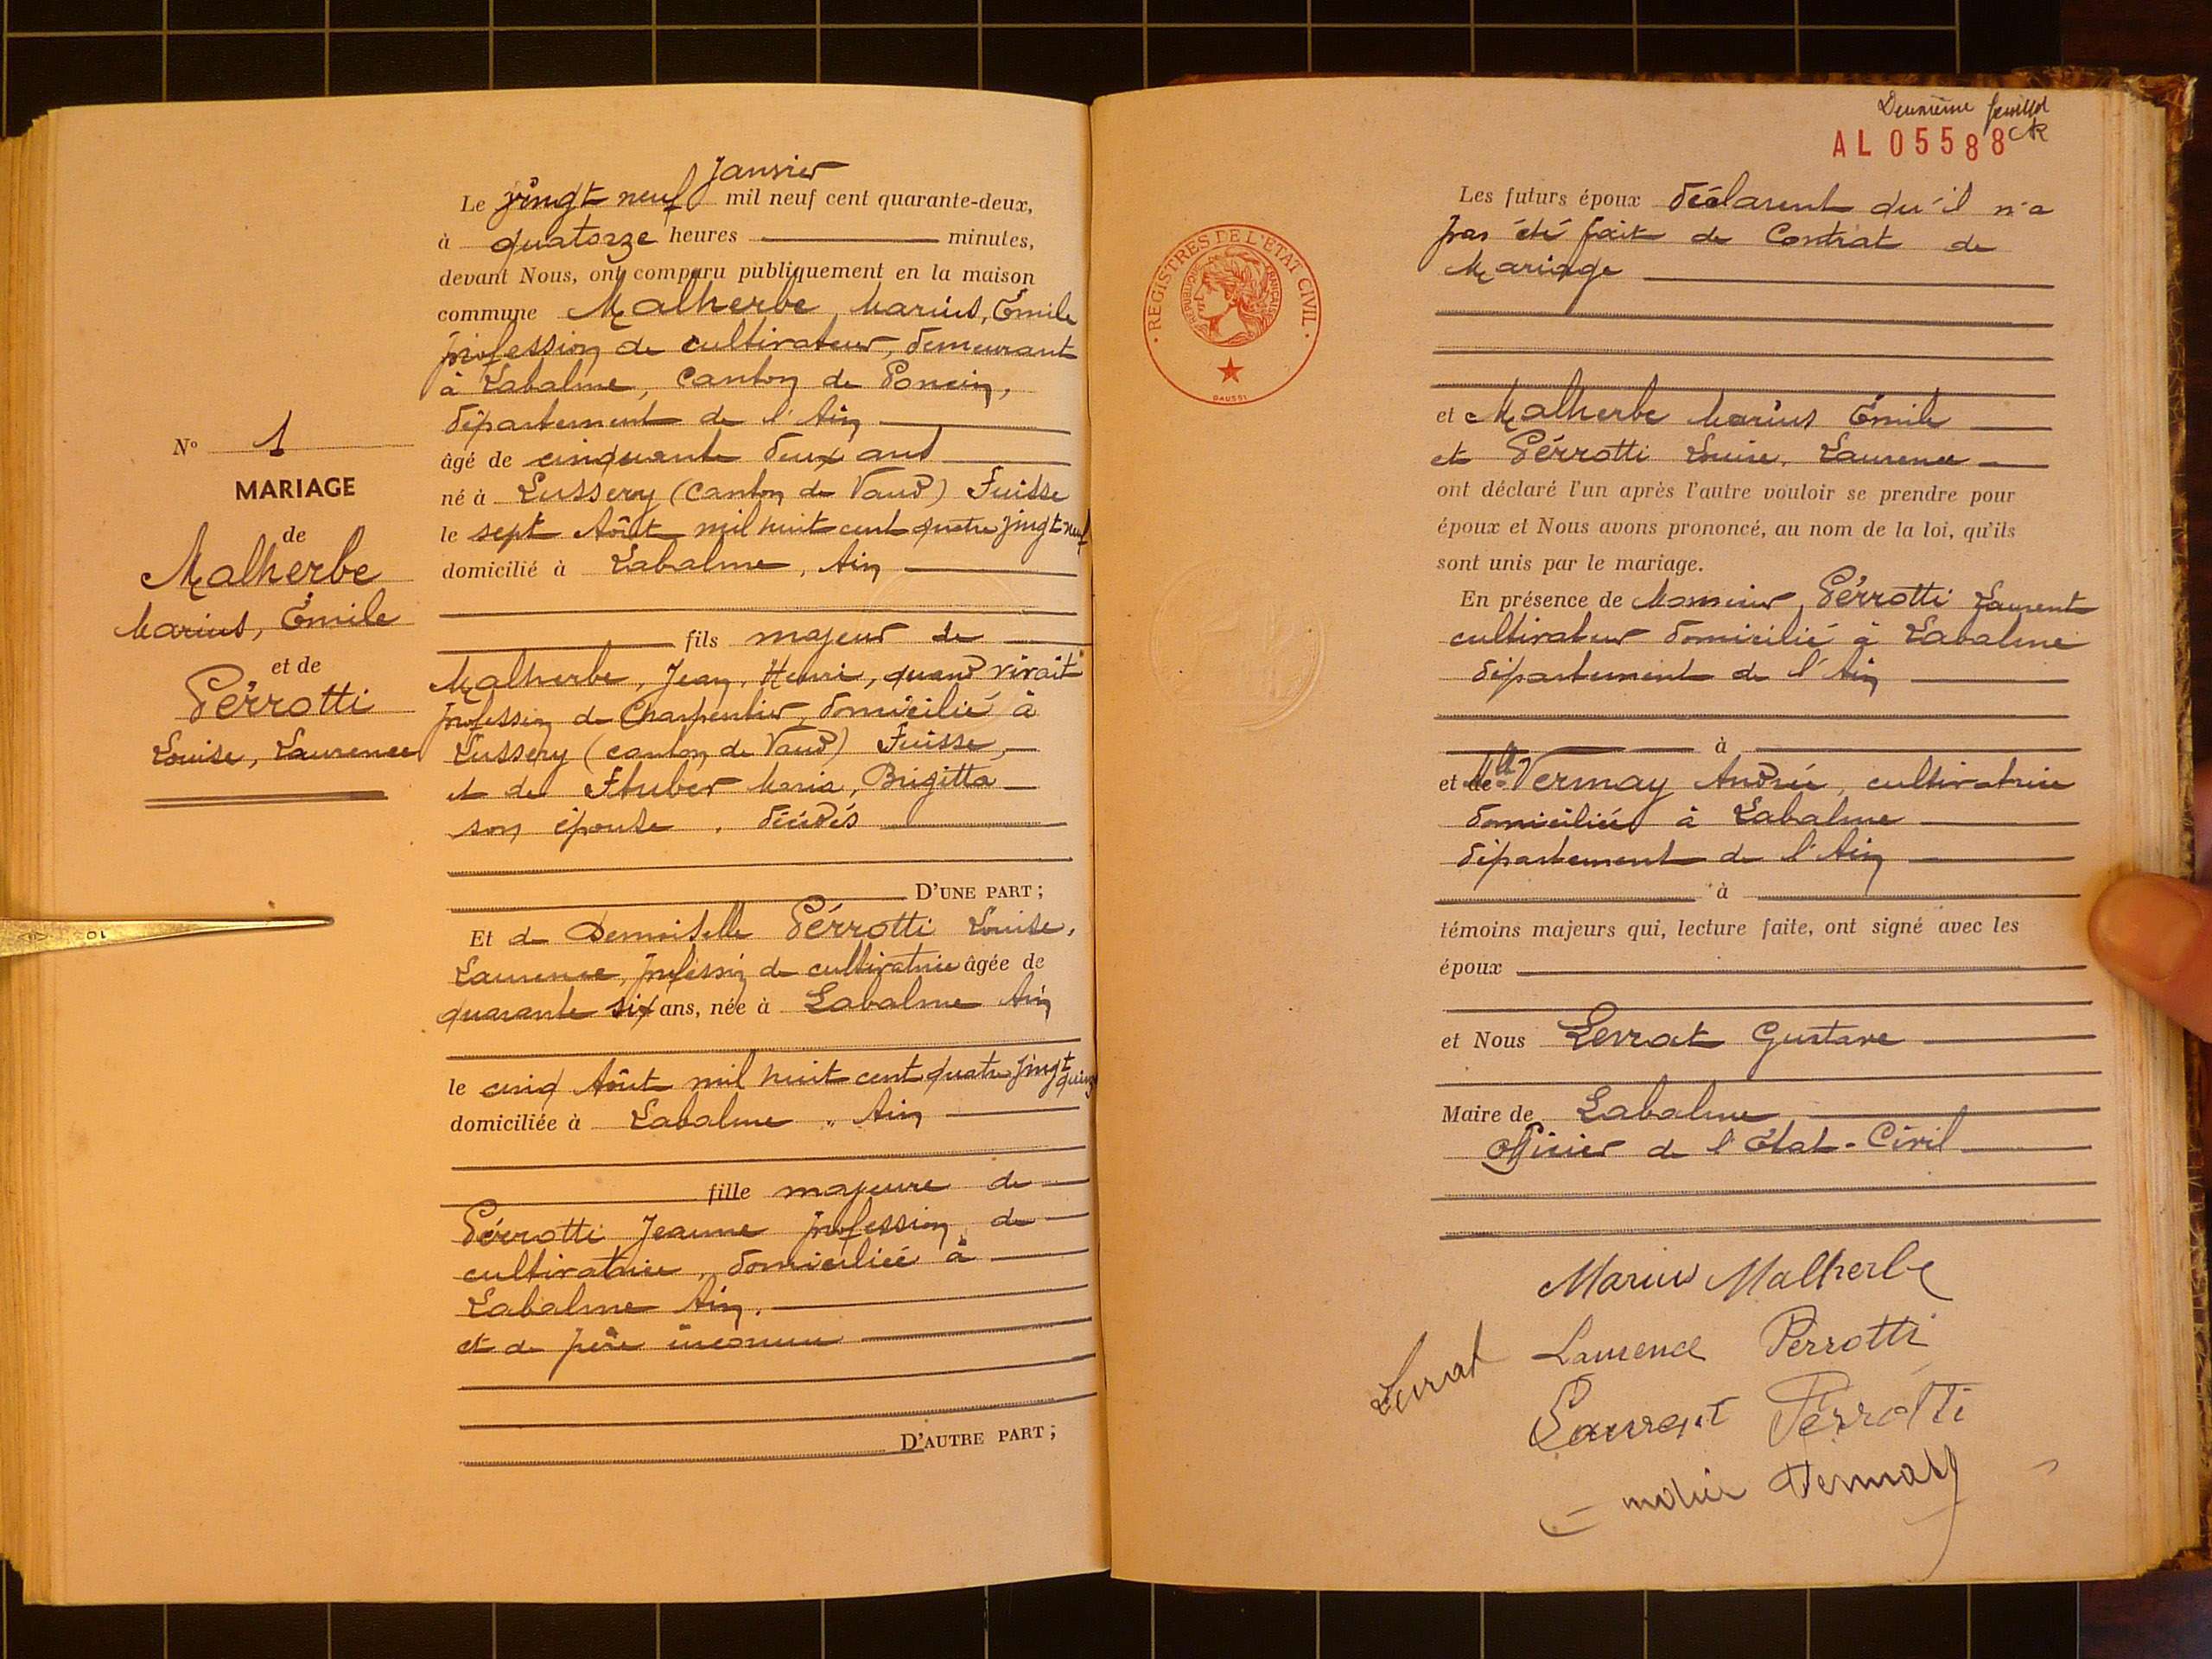 N° 1
MARIAGE
de
Malherbe
Marius, Émile
et de
Pérrotti
Louise, Laurence
Janvier
Le vingt neuf mil neuf cent quarante-deux,
à quatorze heures minutes,
devant Nous, ont comparu publiquement en la maison
commune Malherbe, Marius, Émile
profession de cultivateur, demeurant
à Labalme, Canton de Poncin,
département de l'Ain
âgé de cinquante deux ans
né à Lussery (Canton de Vaud) Suisse
le sept Août mil huit cent quatre vingt neuf
domicilié à Labalme, Ain
fils majeur de
Malherbe, Jean, Henri, quand vivait
profession de Charpentier, domicilié à
Lussery (canton de Vaud) Suisse,
et de Stuber Maria, Brigitta
son épouse, décédés
D'UNE PART ;
Et de Demoiselle Pérrotti Louise,
Laurence, profession de cultivatrice âgée de
quarante six ans, née à Labalme Ain
le cinq Août mil huit cent quatre vingt quinze
domiciliée à Labalme, Ain
fille majeure de
Pérrotti Jeanne profession de
cultivatrice, domiciliée à
Labalme Ain.
et de père inconnu
D'AUTRE PART ;
Deuxième feuillet
AL 05588
REGISTRES DE L'ÉTAT CIVIL
RÉPUBLIQUE FRANÇAISE
DAUSSI
Les futurs époux déclarent qu'il n'a
pas été fait de Contrat de
Mariage
et Malherbe Marius Émile
et Pérrotti Louise, Laurence
ont déclaré l'un après l'autre vouloir se prendre pour
époux et Nous avons prononcé, au nom de la loi, qu'ils
sont unis par le mariage.
En présence de Monsieur Pérrotti Laurent
cultivateur domicilié à Labalme
département de l'Ain
à
et de Mlle Vermay Andrée, cultivatrice
domiciliée à Labalme
département de l'Ain
à
témoins majeurs qui, lecture faite, ont signé avec les
époux
et Nous Levrat Gustave
Maire de Labalme
Officier de l'État-Civil
Marius Malherbe
Laurence Pérrotti
Levrat
Laurent Pérrotti
Vermay